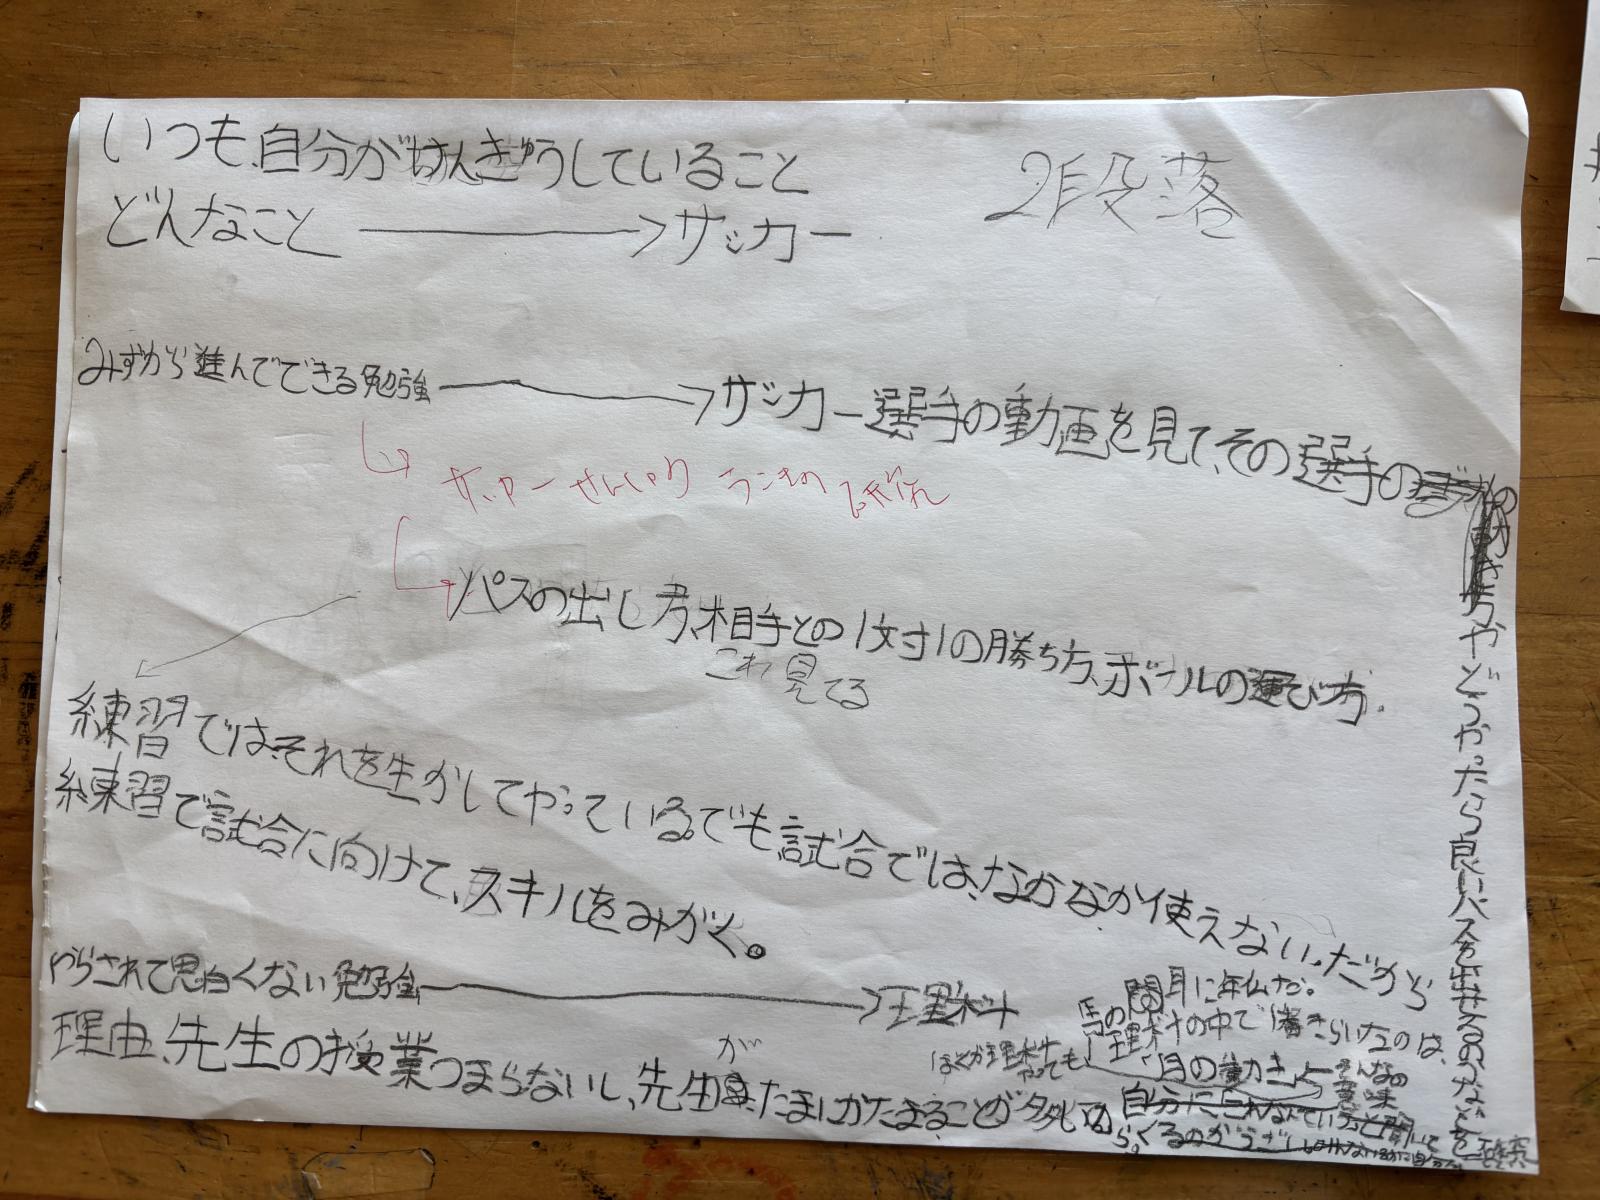 いつも、自分がけんきゅうしていること
2段落
どんなこと → サッカー
みずから進んでできる勉強 → サッカー選手の動画を見て、その選手の
動き方やどうやったら良いパスを出せるのなどを
研究
パスの出し方、相手との1対1の勝ち方、ボールの運び方.
これ見てる
練習では、それを生かしてやっている。でも試合では、なかなか使えない。だから
練習で試合に向けて、スキルをみがく。
やらされて思白くない勉強 → 理科
理由、先生の授業つまらないし、先生がたまにかたまることが多
馬の
耳に念仏だ。
理科の中で1番きらいなのは、
月の動き
そんなの
意味
ぼくが理科
やっても
自分にこれなんていう
聞いて
くるのがうざい